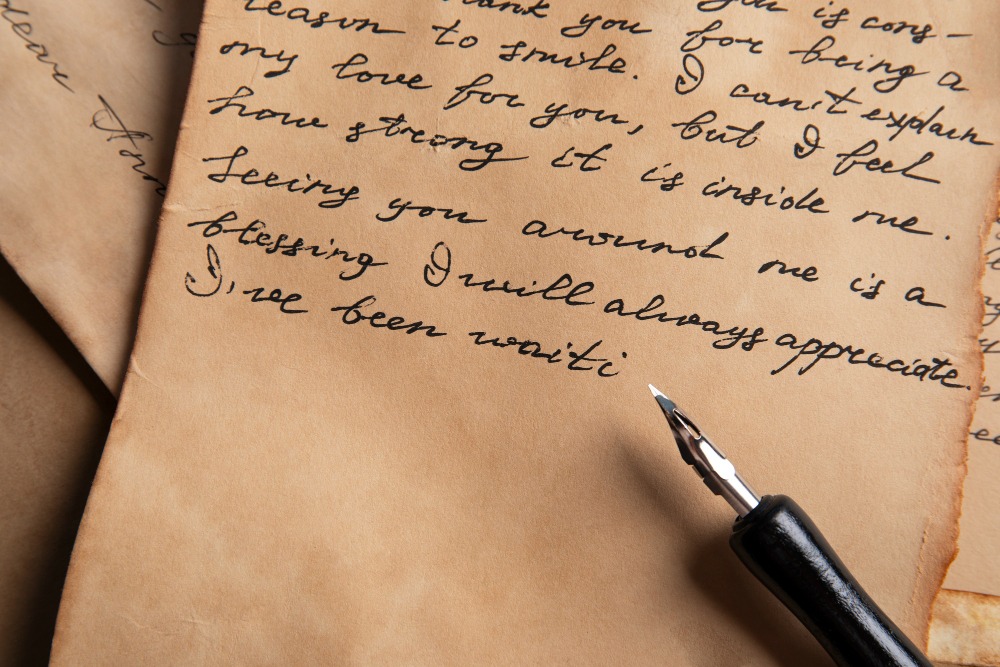 dear Ann
thank you for being a
reason to smile. I can't explain
my love for you, but I feel
how strong it is inside me.
Seeing you around me is a
blessing I will always appreciate.
I've been waiti